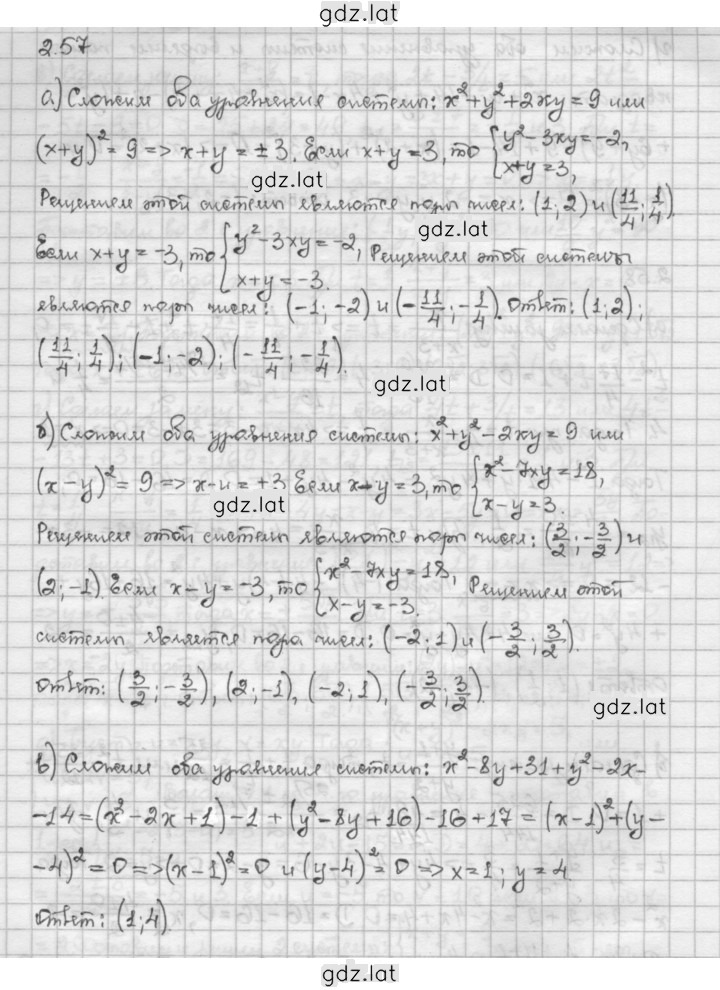 gdz.lat
2.57
а) Сложим оба уравнения системы: x²+y²+2xy=9 или
(x+y)²=9 => x+y=±3. Если x+y=3, то { y²-3xy=-2, x+y=3,
gdz.lat
Решением этой системы являются пары чисел: (1; 2) и (11/4; 1/4).
gdz.lat
Если x+y=-3, то { y²-3xy=-2, x+y=-3. Решением этой системы
являются пары чисел: (-1; -2) и (-11/4; -1/4). Ответ: (1; 2);
(11/4; 1/4); (-1; -2); (-11/4; -1/4).
gdz.lat
б) Сложим оба уравнения системы: x²+y²-2xy=9 или
(x-y)²=9 => x-y=±3 Если x-y=3, то { x²-7xy=18, x-y=3.
gdz.lat
Решением этой системы являются пары чисел: (3/2; -3/2) и
(2; -1). Если x-y=-3, то { x²-7xy=18, x-y=-3. Решением этой
системы является пара чисел: (-2; 1) и (-3/2; 3/2).
Ответ: (3/2; -3/2), (2; -1), (-2; 1), (-3/2; 3/2).
gdz.lat
в) Сложим оба уравнения системы: x²-8y+31+y²-2x-
-14=(x²-2x+1)-1+(y²-8y+16)-16+17=(x-1)²+(y-
-4)²=0=>(x-1)²=0 и (y-4)²=0 => x=1; y=4.
Ответ: (1; 4).
gdz.lat